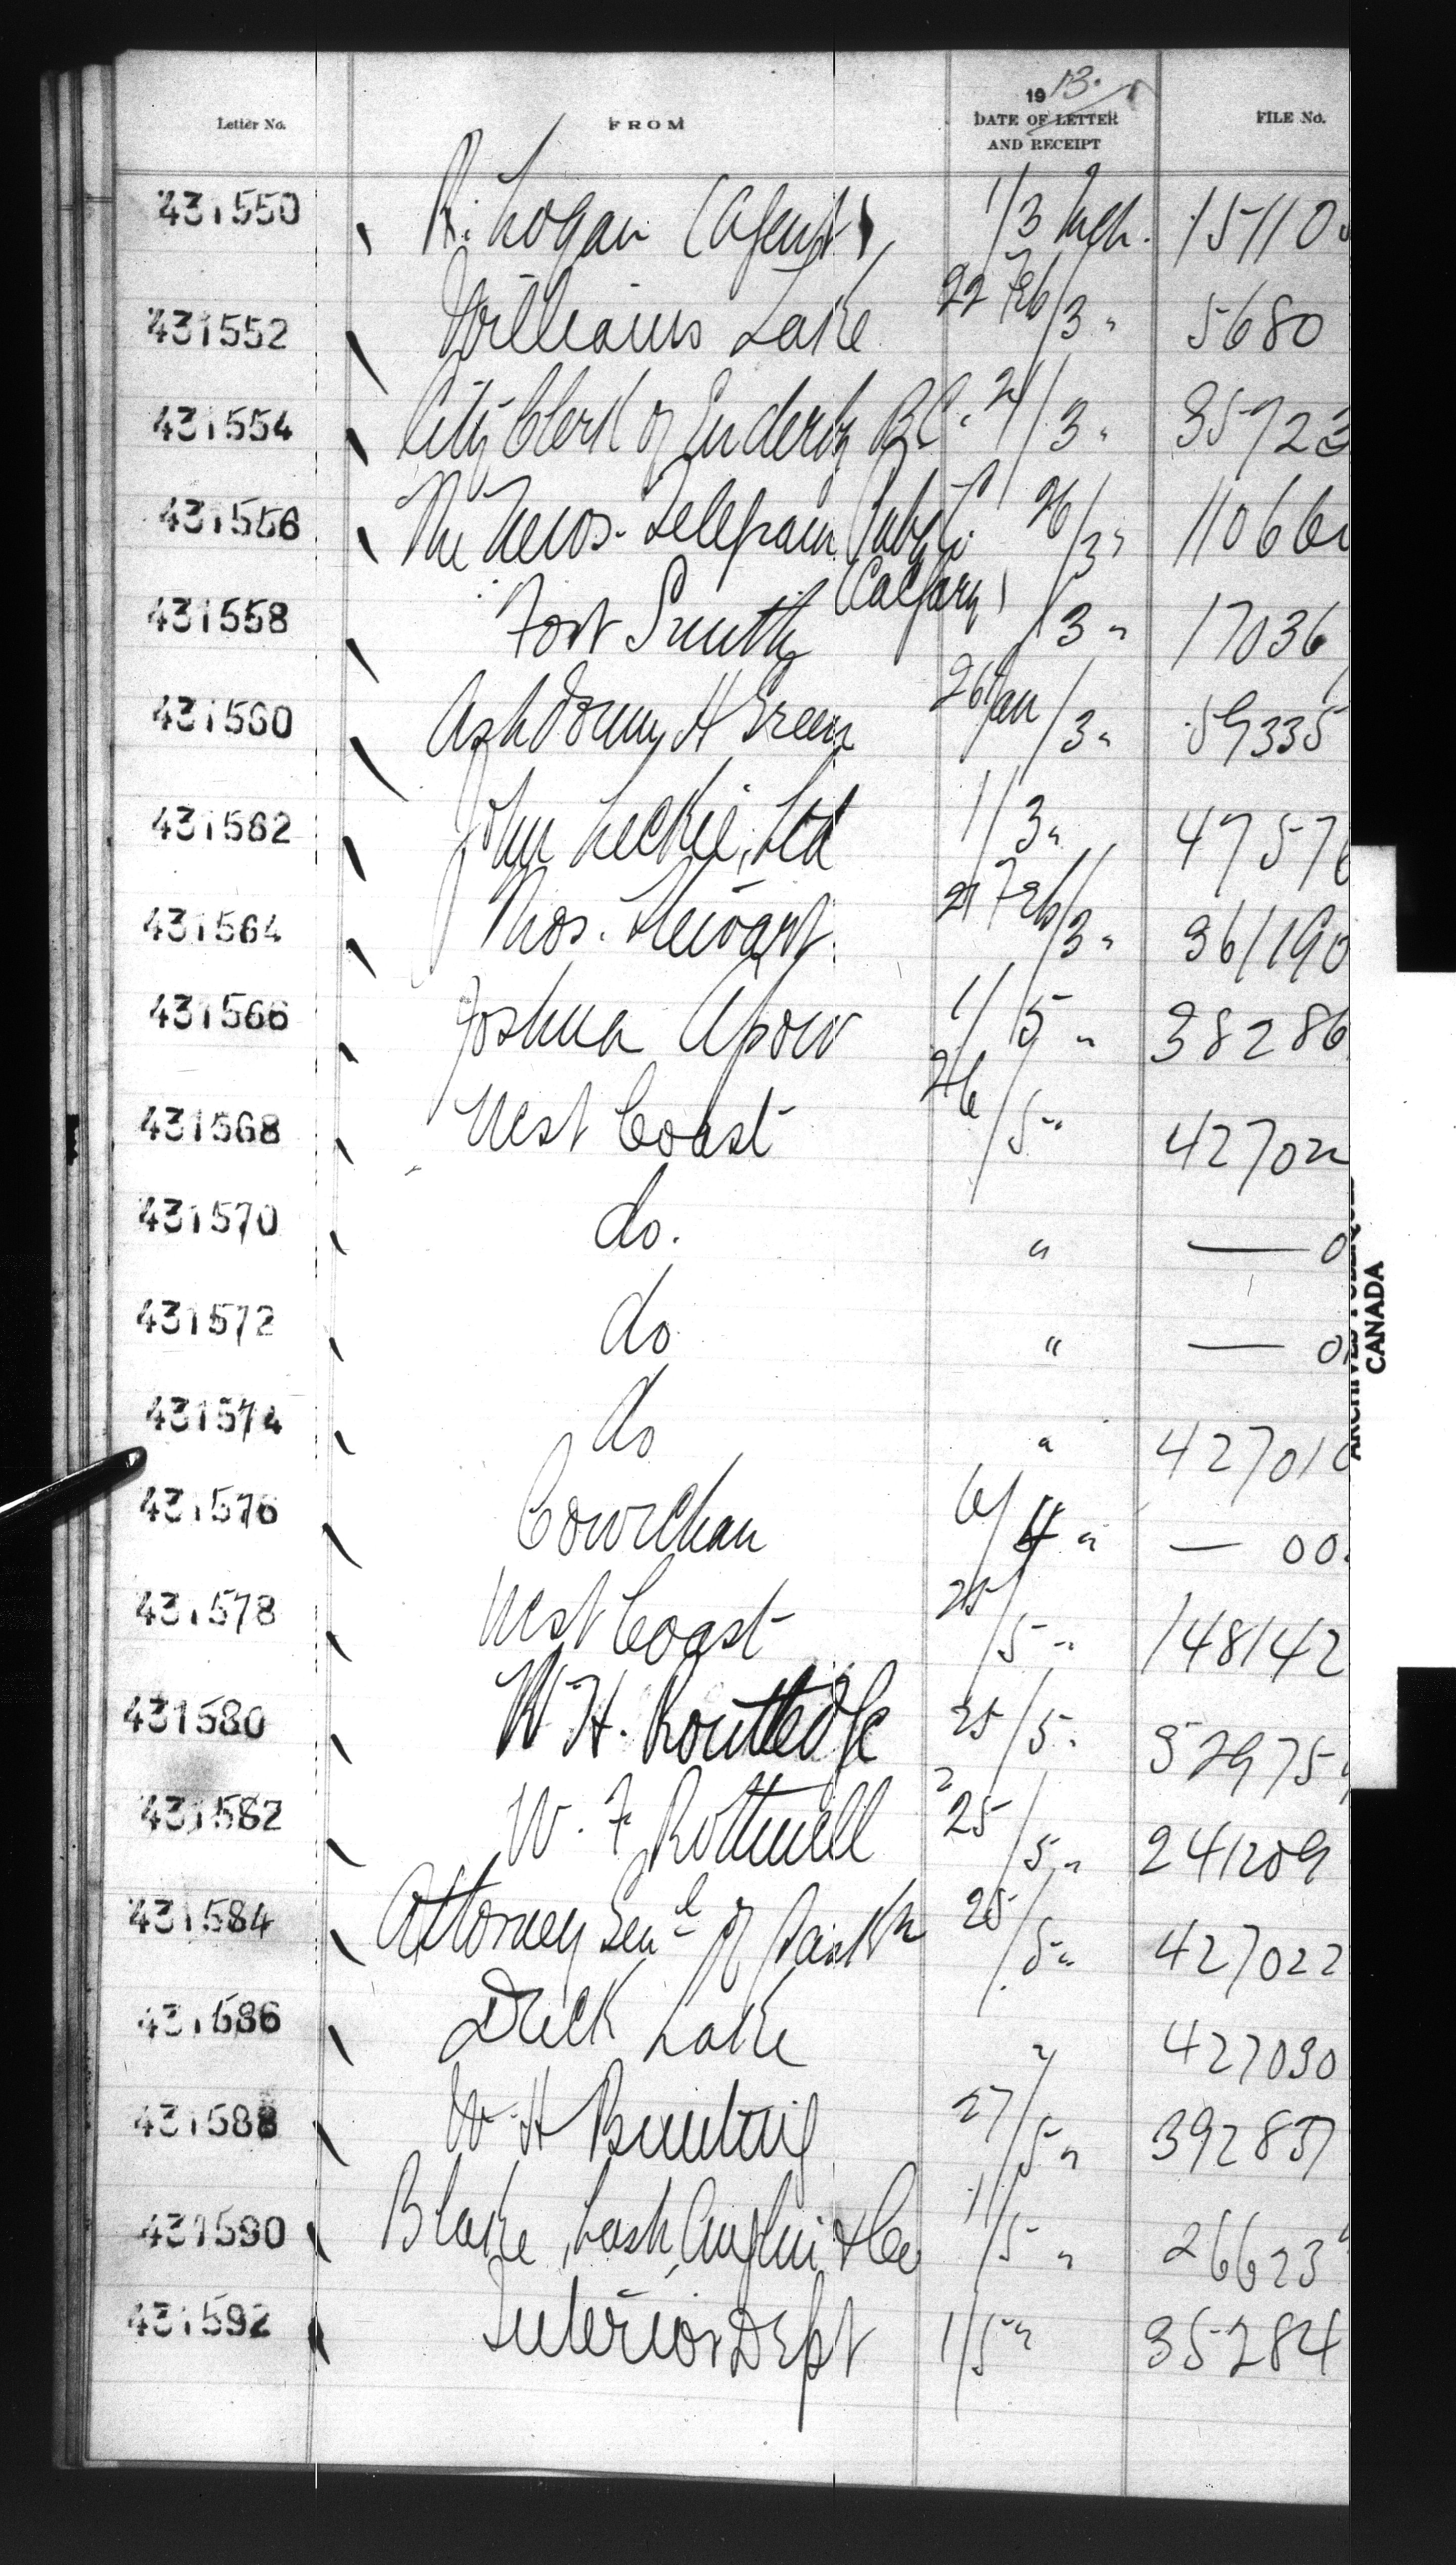 Letter No. FROM 1913. DATE OF LETTER AND RECEIPT FILE No.
431550 R. Logan (Agent) 1/3 Mch. 15110
431552 Williams Lake 22 Feb/3 " 5680
431554 City Clerk of Enderby B.C. 21/3 " 35723
431556 The News-Telegram Pubg Co 26/3 " 11066
(Calgary)
431558 Fort Smith /3 " 17036
431560 Ashdown H Green 26 Jan/3 " 59335
431562 John Leckie, Ltd 1/3 " 47576
431564 Thos. Stewart. 21 Feb/3 " 361190
431566 Joshua 1/5 " 38286
431568 West Coast 26/5 " 42702
431570 do. " — 0
431572 do " — 0
431574 do " 42701
431576 Cowichan 6/4 " — 00
431578 West Coast 25/5 " 148142
431580 W H. Routledge 25/5 " 32975
431582 W. F Rothwell 25/5 " 241209
431584 Attorney Genl of Saskn 25/5 " 427022
431586 Duck Lake " 427030
431588 W. H Bunting 27/5 " 392837
431590 Blake, Lash, Anglin & Co 1/5 " 26623
431592 Interior Dept 1/5 " 35284
CANADA